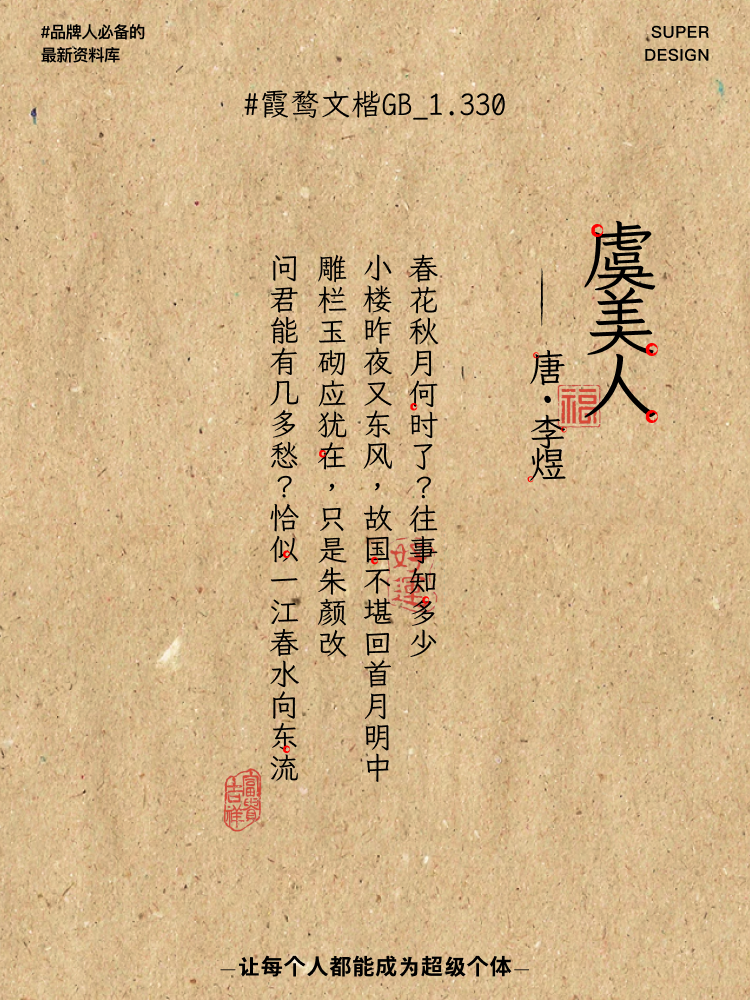 #品牌人必备的
最新资料库
SUPER
DESIGN
#霞鹜文楷GB_1.330
虞美人
——唐·李煜
福
春花秋月何时了？往事知多少
小楼昨夜又东风，故国不堪回首月明中
雕栏玉砌应犹在，只是朱颜改
问君能有几多愁？恰似一江春水向东流
好運
富貴吉祥
—让每个人都能成为超级个体—